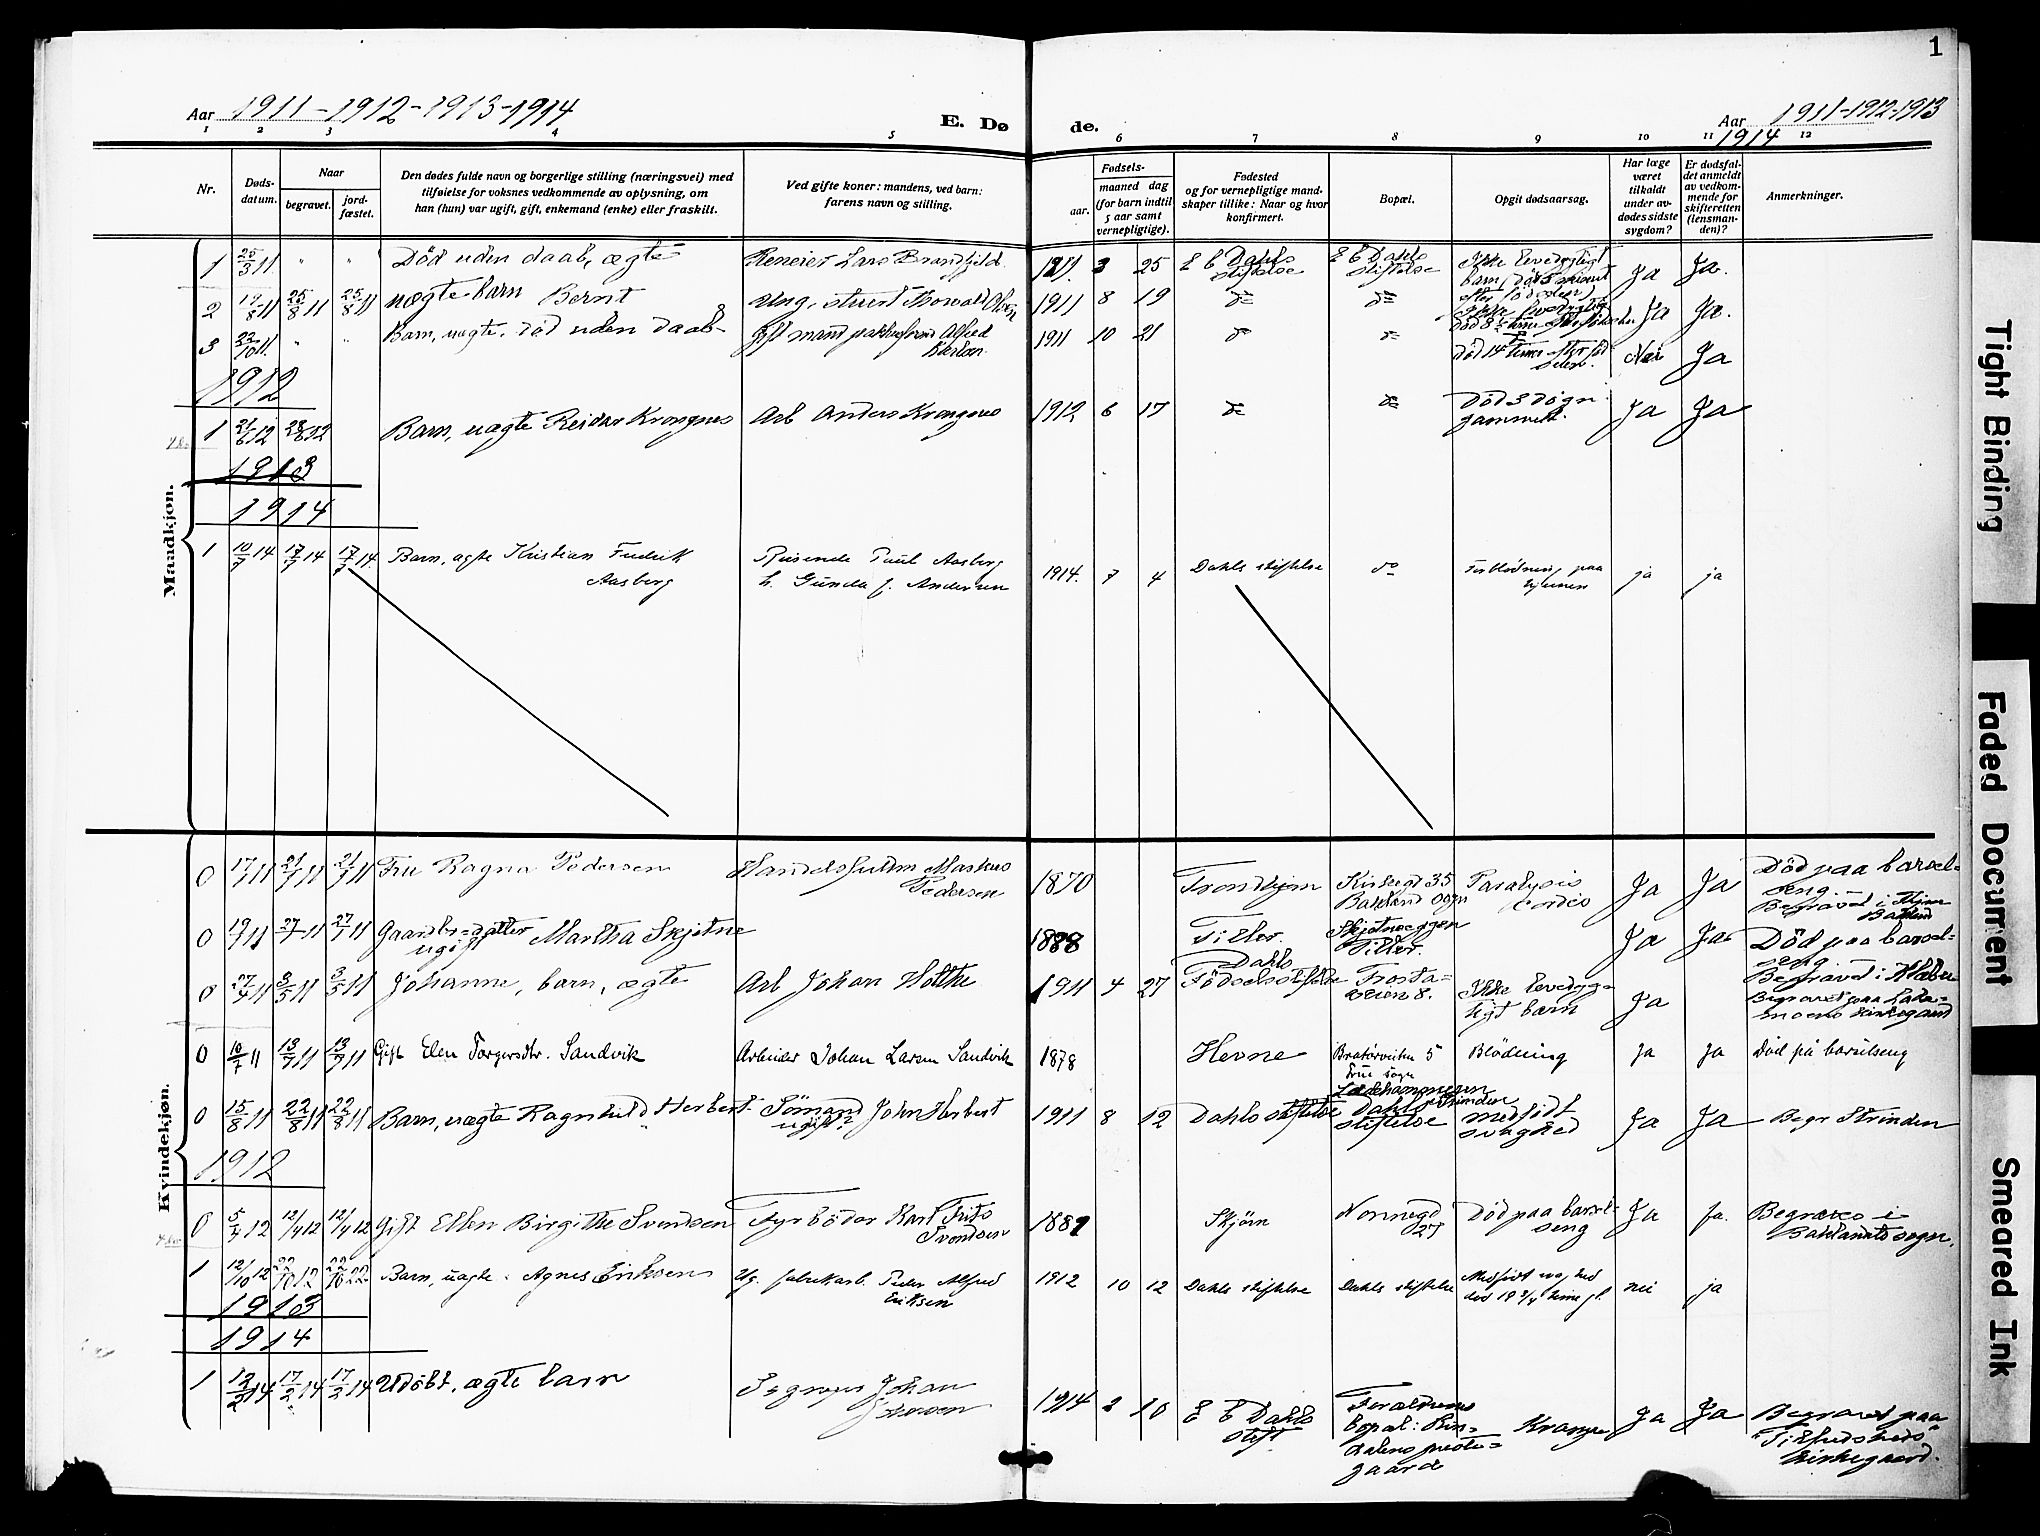 1
Aar 1911-1912-1913-1914
E. Dø
de.
Aar 1911-1912-1913
1914
1 2 3 4 5 6 7 8 9 10 11 12
Nr.
Døds-
datum.
Naar
begravet.
jord-
fæstet.
Den dødes fulde navn og borgerlige stilling (næringsvei) med
tilføielse for voksnes vedkommende av oplysning, om
han (hun) var ugift, gift, enkemand (enke) eller fraskilt.
Ved gifte koner: mandens, ved barn:
farens navn og stilling.
Fødsels-
aar.
maaned dag
(for barn indtil
5 aar samt
vernepligtige).
Fødested
og for vernepligtige mand-
skaper tillike: Naar og hvor
konfirmert.
Bopæl.
Opgit dødsaarsag.
Har læge
været
tilkaldt
under av-
dødes sidste
sygdom?
Er dødsfal-
det anmeldt
av vedkom-
mende for
skifteretten
(lensman-
den)?
Anmerkninger.
Mandkjøn.
1 25/3 11 " " Død uden daab, ægte Lars 1911. 3 25 E C Dahls stiftelse E C Dahls stiftelse Ikke levedygtigt barn Ja Ja.
2 19/8 11 25/8 11 25/8 11 uægte barn Bernt Ung. Olsen 1911 8 19 do do Ja Ja.
3 22/10 11. " " Barn, uægte. død uden daab- Gift mand Alfred 1911 10 21 do do død 14 timer Nei Ja
1912
1 21/6 12 28/6 12 Barn, uægte Reidar Krongnes Arb Anders Krongnes 1912 6 17 do do Død 3 døgn gammelt. Ja Ja
1913
1914
1 10/7 14 17/7 14 17/7 14. Barn, ægte Kristian Fredrik Aasberg Reisende Paul Aasberg h. Gunda f. Andersen 1914. 7 4 Dahls stiftelse do Forblødning paa hjernen ja ja
Kvindekjøn.
0 17/1 11 21/1 11 21/1 11 Fru Ragna Pedersen Markus Pedersen 1870 Trondhjem 35 Bakland sogn Paralysis cordis Ja Ja Død paa barsel-
seng.
Begravet i
Bakland
0 19/1 11 27/1 11 27/1 11 Gaardbr-datter ugift Martha Skjetne 1888 Tiller. Tiller. Ja Ja Død paa barsel-
seng.
Begravet i Klæbu
0 27/4 11 3/5 11 3/5 11 Johanne, barn, ægte Arb Johan Holthe 1911 4 27 Dahls Fødselsstiftelse Frosta-
veien 8. Ikke levedyg-
tigt barn Ja Begravet paa Lade-
moens Kirkegaard
0 10/7 11 13/7 11 13/7 11 Gift Elen Torgersdtr. Sandvik Arbeider Johan Larsen Sandvik 1878 Hevne Bratørveiten 5
Frue sogn Blödning Ja Ja Død på barselseng
0 15/8 11 22/8 11 22/8 11 Barn, uægte Ragnhild Herbert Sømand ugift? John Herbert 1911 8 12 Dahls stiftelse Ladehammeren
Strinden
Dahls stiftelse medfødt svaghed Ja Ja Begr Strinden
1912
0 5/4 12 12/4 12 12/4 12 Gift Ellen Birgitte Svendsen Fyrbøder Karl Frits Svendsen 1881 Skjørn Nonnegd 27 Død paa barsel-
seng Ja ja. Begraves i
Baklandets sogn.
1 12/10 12 22/10 12 22/10 22 Barn, uægte. Agnes Eriksen Ug. fabrikarb. Peder Alfred Eriksen 1912 10 12 Dahls stiftelse Dahls stiftelse Medfødt svaghed
død 19 3/4 time gl. nei ja
1913
1914
1 12/2 14 17/2 14 17/2 14 Udøbt, ægte barn Johan 1914 2 10 E C Dahls
stift. Forældrenes
bopæl: Rin-
dalens preste-
gaard Krampe Ja Ja Begravet paa
"Tilfredsheds"
kirkegaard.
Tight Binding
Faded Document
Smeared Ink